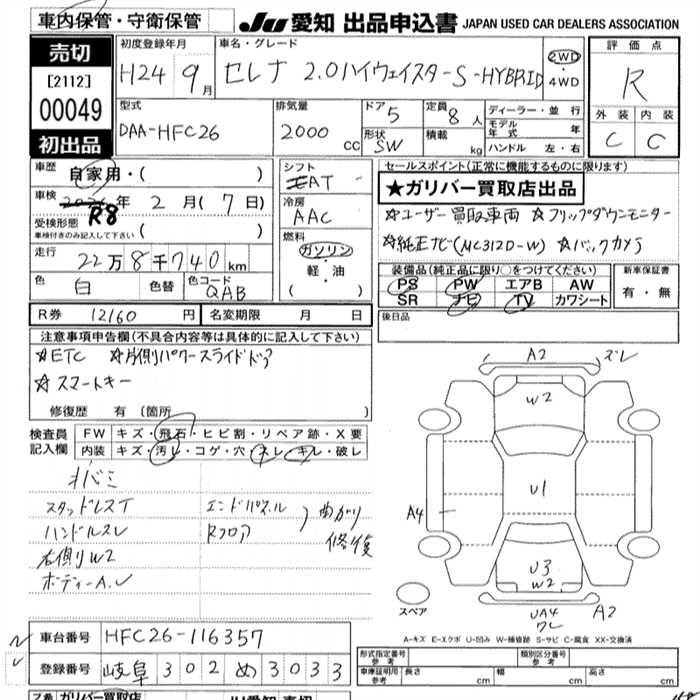 車内保管・守衛保管
JU 愛知 出品申込書 JAPAN USED CAR DEALERS ASSOCIATION
売切
[2112]
00049
初出品
初度登録年月
H24 9月
車名・グレード
セレナ 2.0ハイウェイスターS-HYBRID
2WD・4WD
評価点
R
外装 内装
C C
型式
DAA-HFC26
排気量
2000 cc
ドア 5
形状 SW
定員 8人
積載 kg
ディーラー・並行
モデル年式 年
ハンドル 左・右
車歴
自家用・( )
車検
R8年 2月(7日)
受検形態
車検付きのみ記入して下さい ( )
走行
22万8千740km
色 白 色替 色コード QAB
シフト
AT
冷房
AAC
燃料
ガソリン・軽・油
( )
セールスポイント(正常に機能するものに限ります)
★ガリバー買取店出品
☆ユーザー買取車両 ☆フリップダウンモニター
☆純正ナビ(MC312D-W) ☆バックカメラ
装備品(純正品に限り○をつけてください)
PS PW エアB AW
SR ナビ TV カワシート
新車保証書
有・無
後日品
R券 12160円 名変期限 月 日
注意事項申告欄(不具合内容等は具体的に記入して下さい)
☆ETC ☆片側パワースライドドア
☆スマートキー
修復歴 有 〔箇所 〕
検査員記入欄
FW キズ・飛石・ヒビ割・リペア跡・X要
内装 キズ・汚レ・コゲ・穴・スレ・キレ・破レ
スタッドレスT
ハンドルスレ
右側リW2
ボディーA.U
エンドパネル
Rフロア
曲がり
修復
A2 ズレ
W2
U1
A4
U3
W2
UA4
ワレ
A2
スペア
A-キズ E-エクボ U-凹み W-補修跡 S-サビ C-腐食 XX-交換済
車台番号 HFC26-116357
登録番号 岐阜 302 め 3033
形式指定番号 参考
類別区分番号 参考
車庫証明用 参考 長さ cm 幅 cm 高さ cm